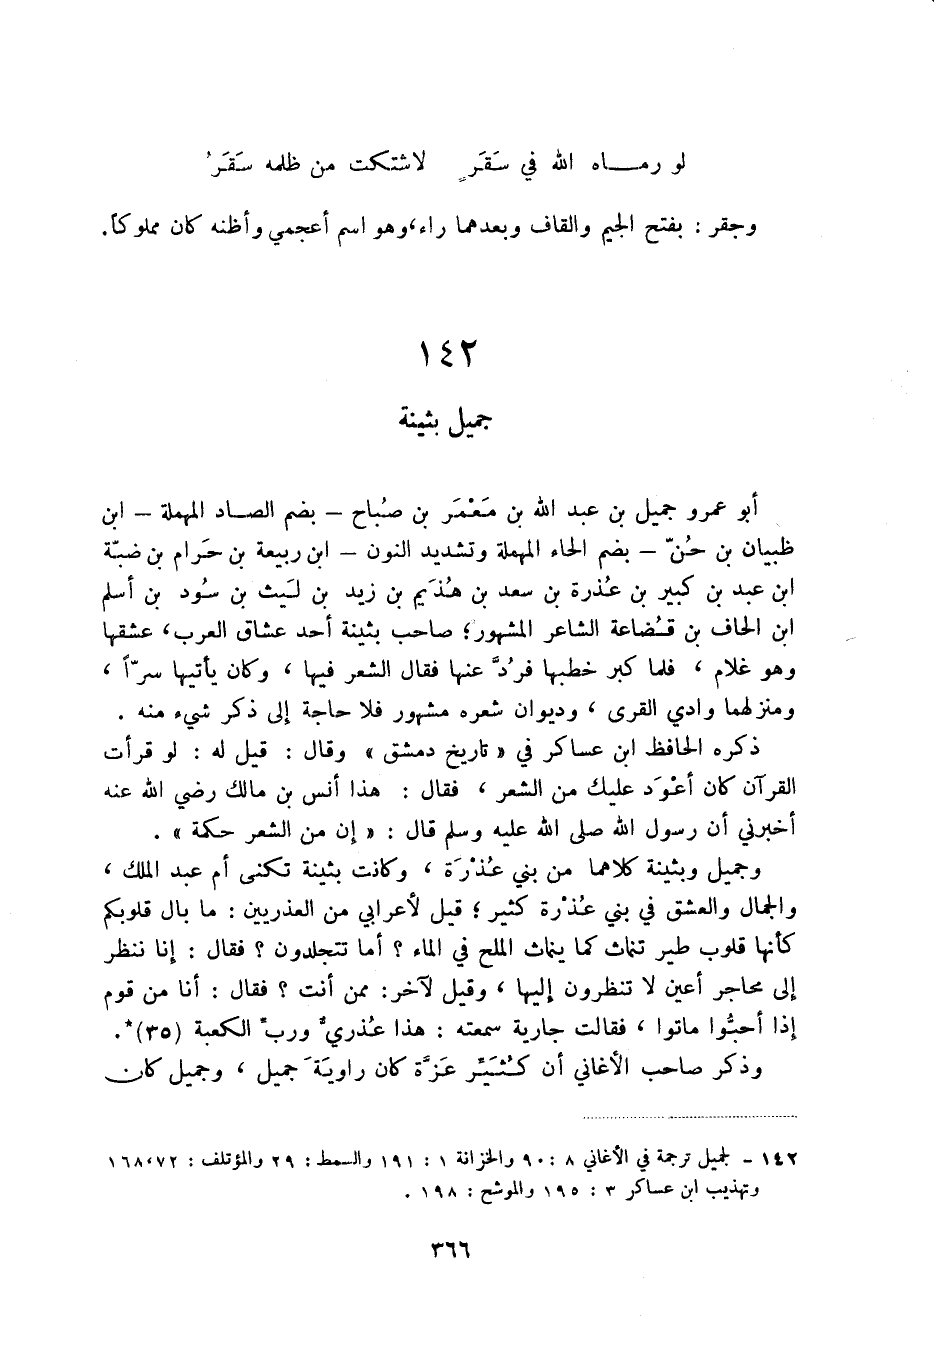 لو رمـــاه الله في سَقَرٍ لاشتكت من ظلمه سَقَرُ
وجقر : بفتح الجيم والقاف وبعدهما راء، وهو اسم أعجمي وأظنه كان مملوكاً.
١٤٢
جميل بثينة
أبو عمرو جميل بن عبد الله بن مَعْمَر بن صُباح – بضم الصاد المهملة – ابن
ظبيان بن حُنّ – بضم الحاء المهملة وتشديد النون – ابن ربيعة بن حَرام بن ضبّة
ابن عبد بن كبير بن عُذرة بن سعد بن هُذَيم بن زيد بن لَيث بن سُود بن أسلم
ابن الحاف بن قُضاعة الشاعر المشهور؛ صاحب بثينة أحد عشاق العرب، عشقها
وهو غلام ، فلما كبر خطبها فرُدَّ عنها فقال الشعر فيها ، وكان يأتيها سرّاً ،
ومنزلهما وادي القرى ، وديوان شعره مشهور فلا حاجة إلى ذكر شيء منه .
ذكره الحافظ ابن عساكر في « تاريخ دمشق » وقال : قيل له : لو قرأت
القرآن كان أعْوَد عليك من الشعر ، فقال : هذا أنس بن مالك رضي الله عنه
أخبرني أن رسول الله صلى الله عليه وسلم قال : « إن من الشعر حكمة » .
وجميل وبثينة كلاهما من بني عُذْرَة ، وكانت بثينة تكنى أم عبد الملك ،
والجمال والعشق في بني عُذْرة كثير ؛ قيل لأعرابي من العذريين : ما بال قلوبكم
كأنها قلوب طير تنماث كما ينماث الملح في الماء ؟ أما تتجلدون ؟ فقال : إنا ننظر
إلى محاجر أعين لا تنظرون إليها ، وقيل لآخر: ممن أنت ؟ فقال : أنا من قوم
إذا أحبُّوا ماتوا ، فقالت جارية سمعته : هذا عُذريٌّ وربِّ الكعبة (٣٥)*.
وذكر صاحب الأغاني أن كُثَيِّر عَزَّة كان راويَة جميل ، وجميل كان
١٤٢ - لجميل ترجمة في الأغاني ٨ : ٩٠ والخزانة ١ : ١٩١ والسمط : ٢٩ والمؤتلف : ٧٢، ١٦٨
وتهذيب ابن عساكر ٣ : ٣٩٥ والموشح : ١٩٨ .
٣٦٦